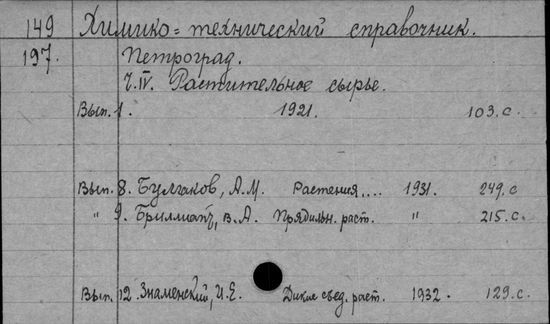 149 Химико=технический справочник.
197. Петроград.
Ч.IV. Растительное сырье.
Вып. 1. 1921. 103.с.
Вып. 8. Булгаков, А.М. Растения.... 1931. 249.с
" 9. Бриллиант, В.А. Прядильн. раст. " 215.с.
Вып. 12. Знаменский, И.Е. Дикие съед. раст. 1932. 129.с.